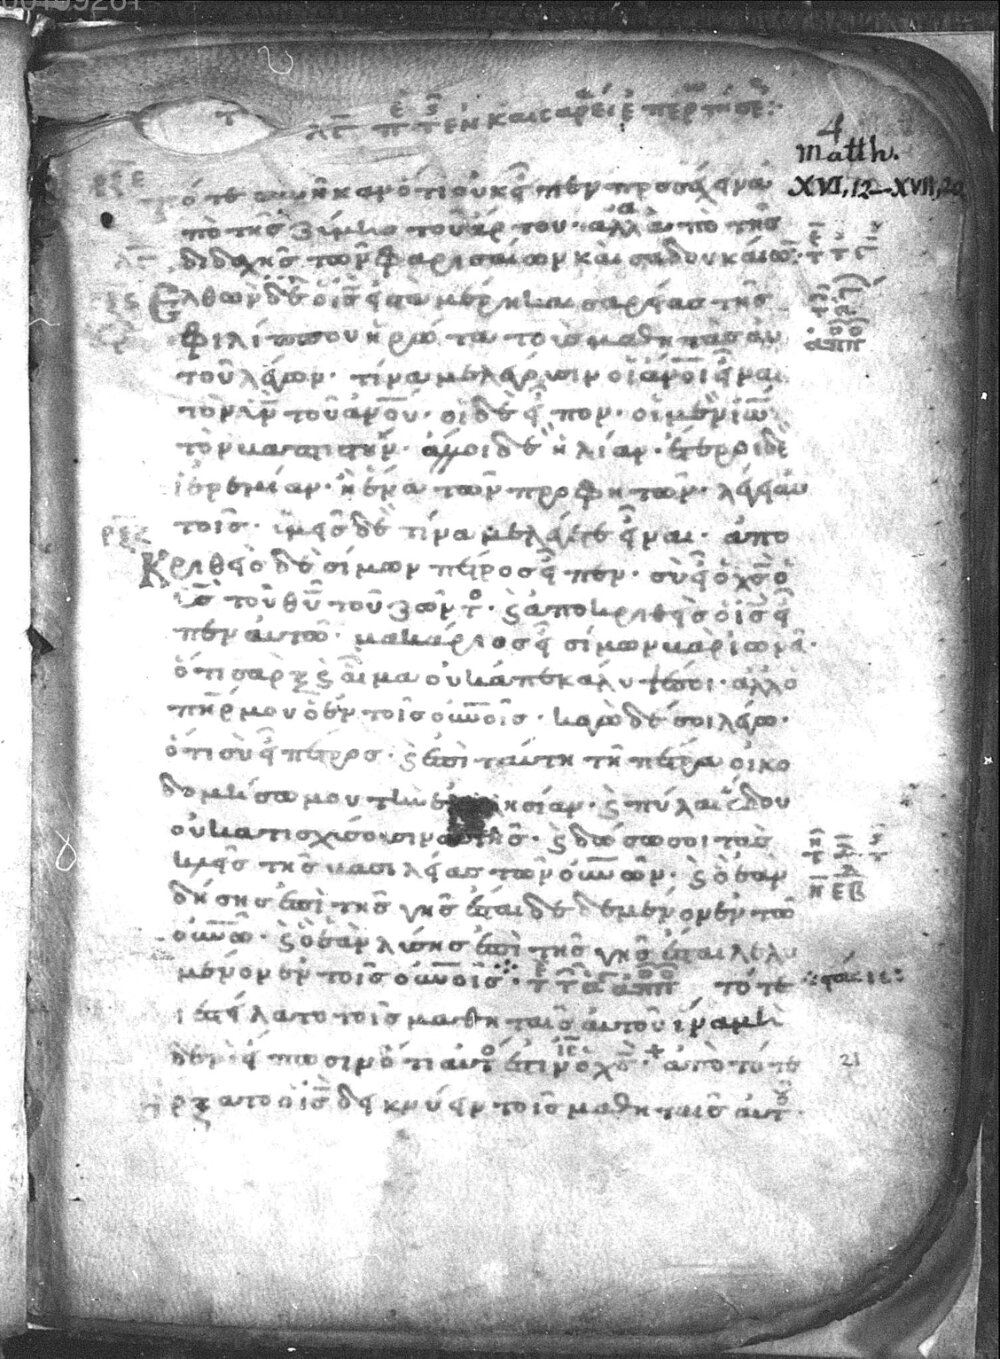 4
Matth.
XVI, 12–XVII, 20
τότε συνῆκαν ὅτι οὐκ εἶπεν προσέχειν ἀ
πὸ τῆς ζύμης τοῦ ἄρτου· ἀλλὰ ἀπὸ τῆς
διδαχῆς τῶν φαρισαίων καὶ σαδουκαίων:
Ἐλθὼν δὲ ὁ ις εἰς τὰ μέρη καισαρείας τῆς
φιλίππου ἠρώτα τοὺς μαθητὰς αὐ
τοῦ λέγων· τίνα με λέγουσιν οἱ ανοι εἶναι
τὸν υν τοῦ ανου· οἱ δὲ εἶπον· οἱ μὲν ιω
τὸν βαπτιστήν· ἄλλοι δὲ ἠλίαν· ἕτεροι δὲ
ἱερεμίαν· ἢ ἕνα τῶν προφητῶν· λέγει αὐ
τοῖς· ὑμεῖς δὲ τίνα με λέγετε εἶναι· ἀπο
Κριθεὶς ὁ δὲ σίμων πέτρος εἶπεν· σὺ εἶ ὁ χς ὁ
υς τοῦ θυ τοῦ ζῶντο· ϗ ἀποκριθεὶς ὁ ις εἶ
πεν αὐτῶ· μακάριος εἶ σίμων βαριωνᾶ·
ὅτι σὰρξ ϗ αἷμα οὐκ ἀπεκάλυψε σοι· ἀλλ ὁ
πηρ μου ὁ ἐν τοῖς ουνοις· κἀγὼ δέ σοι λέγω·
ὅτι σὺ εἶ πέτρος· ϗ ἐπὶ ταύτη τῆ πέτρα οἰκο
δομήσω μου τὴν ἐκκλησίαν· ϗ πύλαι ἅδου
οὐ κατισχύσουσιν αὐτῆς· ϗ δώσω σοι τὰς
κλεῖς τῆς βασιλείας τῶν ουνων· ϗ ὃ ἐὰν
δήσης ἐπὶ τῆς γῆς ἔσται δεδεμένον ἐν τῶ
ουνω· ϗ ὃ ἐὰν λύσης ἐπὶ τῆς γῆς ἔσται λελυ
μένον ἐν τοῖς ουνοις· τότε
διεστείλατο τοῖς μαθηταῖς αὐτοῦ ἵνα μη
δενὶ εἴπωσιν ὅτι αὐτὸ ἐστιν ις ὁ χς· + ἀπὸ τότε
ἤρξατο ὁ ις δεικνύειν τοῖς μαθηταῖς αὐτοῦ
21